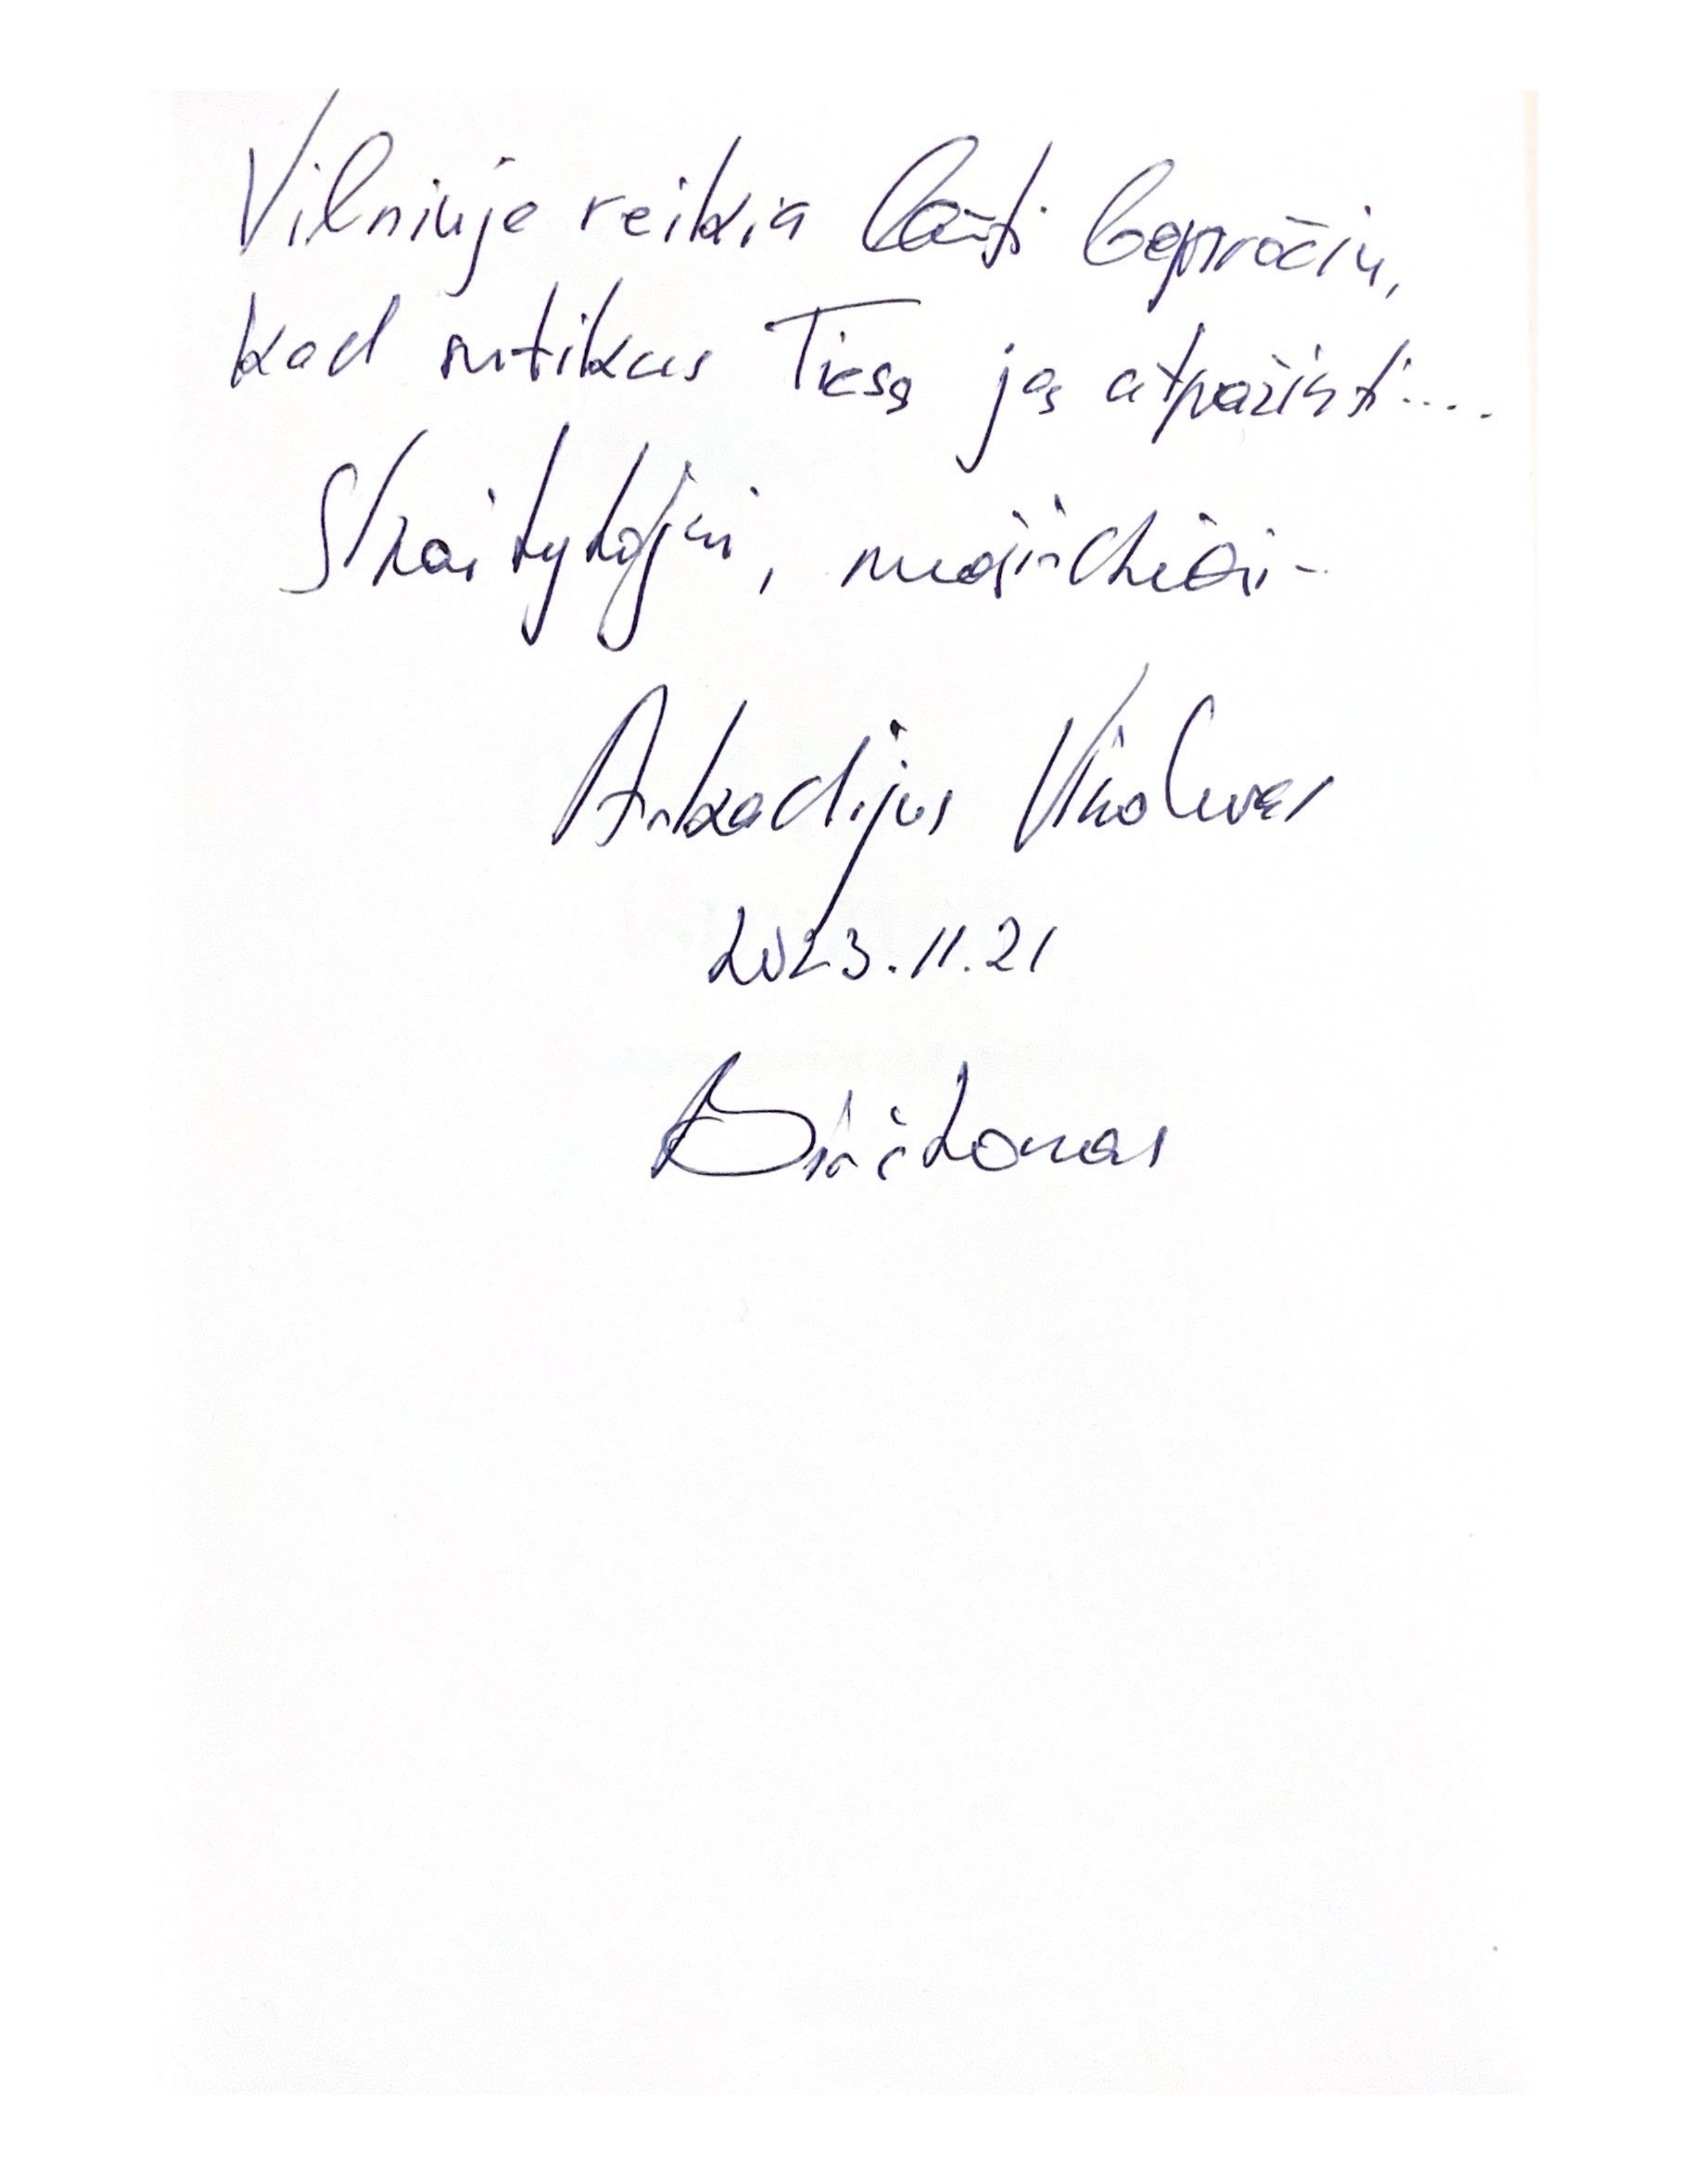 Vilniuje reikia būti bepročiu,
kad sutikus Tiesą ją atpažinti....
Skaitytojui, nuoširdžiai -
Arkadijus Vinokuras
2023.11.21
Birštonas